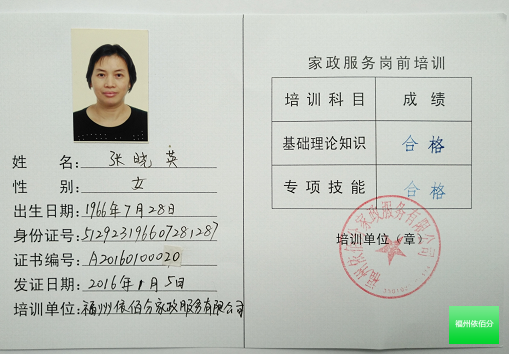 姓 名: 张晓英
性 别: 女
出生日期: 1966年7月28日
身份证号: 512923196607281287
证书编号: A20160100020
发证日期: 2016年1月5日
培训单位: 福州依佰分家政服务有限公司
家政服务岗前培训
培训科目 成绩
基础理论知识 合格
专项技能 合格
培训单位(章)
福州依佰分家政服务有限公司
福州依佰分